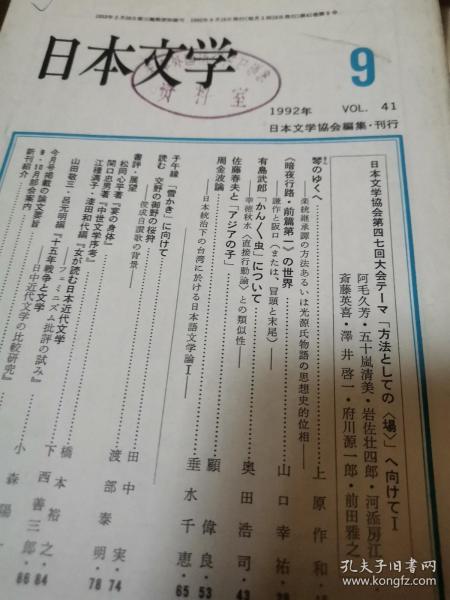 日本文学
9
資料室
1992年 VOL. 41
日本文学協会編集・刊行
日本文学協会第四七回大会テーマ「方法としての〈場〉」へ向けてⅠ
阿毛久芳・五十嵐清美・岩佐壮四郎・河添房江
斎藤英喜・澤井啓一・府川源一郎・前田雅之
琴のゆくへ
――楽統継承譚の方法あるいは光源氏物語の思想史的位相――
上原作和
《暗夜行路・前篇第二》の世界
――謙作と阪口（または、冒頭と末尾）――
山口幸祐
有島武郎「かん〱虫」について
――幸徳秋水〈直接行動論〉との類似性――
奥田浩司・43
佐藤春夫と「アジアの子」
顧偉良・53
周金波論
――日本統治下の台湾に於ける日本語文学論Ⅰ――
垂水千恵・65
子午線「雪かき」に向けて
田中実・74
読む 交野の御野の桜狩
――俊成自讃歌の背景――
渡部泰明・78
書評・展望
松岡心平著『宴の身体』
橋本裕之
関口忠男著『中世文学序考』
下西善三郎・84
江種満子・漆田和代編『女が読む日本近代文学
――フェミニズム批評の試み』
小森陽一・86
山田敬三・呂元明編『十五年戦争と文学
――日中近代文学の比較研究』
今月号掲載の論文要旨
9・10月部会案内
新刊紹介
孔夫子旧书网